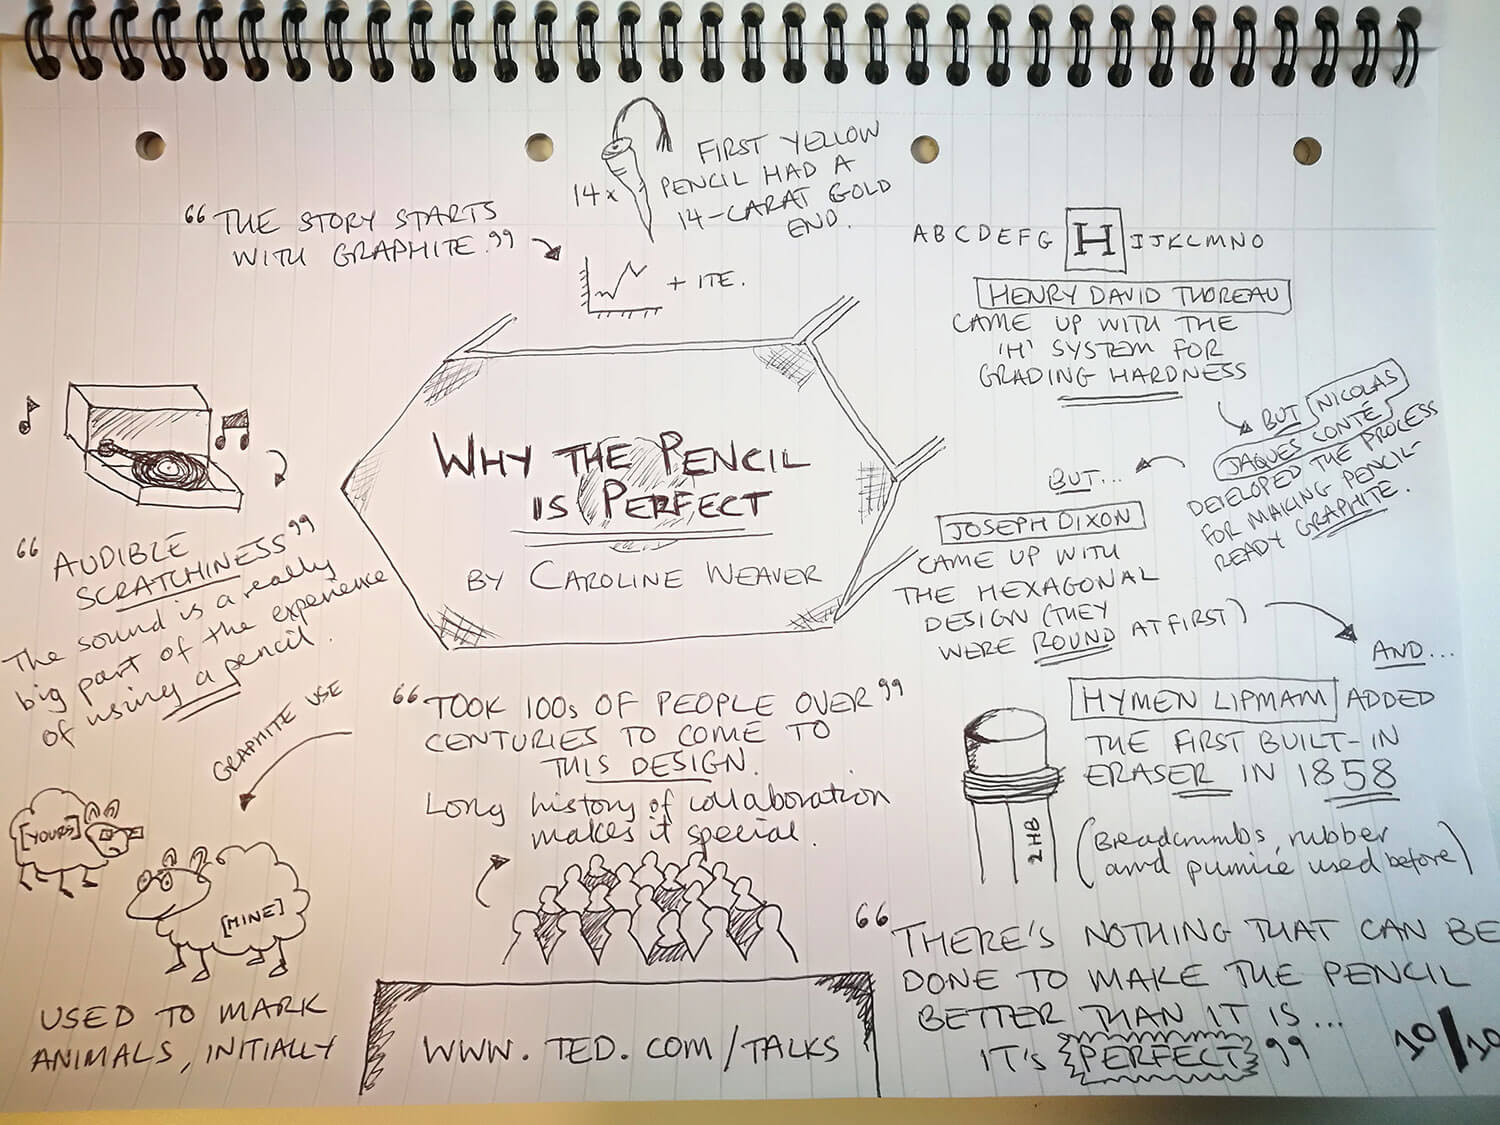 FIRST YELLOW
PENCIL HAD A
14-CARAT GOLD
END.
14x
"THE STORY STARTS
WITH GRAPHITE."
+ ITE.
ABCDEFG H IJKLMNO
HENRY DAVID THOREAU
CAME UP WITH THE
'H' SYSTEM FOR
GRADING HARDNESS
BUT NICOLAS
JAQUES CONTÉ
DEVELOPED THE PROCESS
FOR MAKING PENCIL-
READY GRAPHITE.
WHY THE PENCIL
IS PERFECT
BY CAROLINE WEAVER
BUT...
JOSEPH DIXON
CAME UP WITH
THE HEXAGONAL
DESIGN (THEY
WERE ROUND AT FIRST)
"AUDIBLE
SCRATCHINESS"
The sound is a really
big part of the experience
of using a pencil.
GRAPHITE USE
[YOURS]
[MINE]
USED TO MARK
ANIMALS, INITIALLY
"TOOK 100s OF PEOPLE OVER"
CENTURIES TO COME TO
THIS DESIGN.
Long history of collaboration
makes it special.
WWW.TED.COM/TALKS
AND...
HYMEN LIPMAM ADDED
THE FIRST BUILT-IN
ERASER IN 1858
2HB
(Breadcrumbs, rubber
and pumice used before)
"THERE'S NOTHING THAT CAN BE
DONE TO MAKE THE PENCIL
BETTER THAN IT IS...
IT'S PERFECT"
10/10